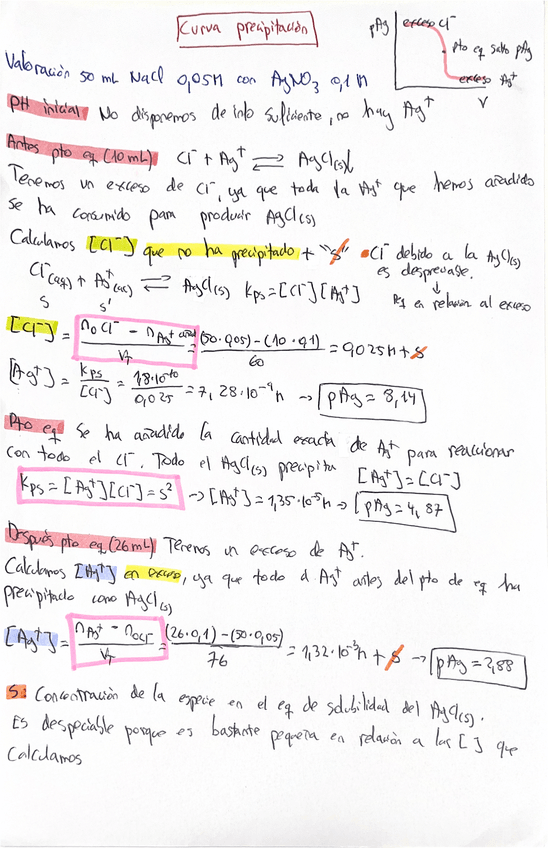 Curva precipitación
pAg
exceso Cl⁻
pto eq salto pAg
exceso Ag⁺
V
Valoración 50 mL NaCl 0,05M con AgNO₃ 0,1M
PH inicial No disponemos de info suficiente, no hay Ag⁺
Antes pto eq (10mL) Cl⁻ + Ag⁺ ⇌ AgCl(s)↓
Tenemos un exceso de Cl⁻, ya que toda la Ag⁺ que hemos añadido
se ha consumido para producir AgCl(s)
Calculamos [Cl⁻] que no ha precipitado + "s" • Cl⁻ debido a la AgCl(s)
es despreciase.
↓
en relación al exceso
Cl⁻(aq) + Ag⁺(ac) ⇌ AgCl(s) Kps = [Cl⁻][Ag⁺]
s s'
[Cl⁻] = (n₀Cl⁻ − nAg⁺ añad)/V_T = ((50·0,05) − (10·0,1))/60 = 0,025M + s
[Ag⁺] = Kps/[Cl⁻] = 1,8·10⁻¹⁰/0,025 = 7,28·10⁻⁹M → pAg = 8,14
Pto eq Se ha añadido la cantidad exacta de Ag⁺ para reaccionar
con todo el Cl⁻. Todo el AgCl(s) precipita [Ag⁺] = [Cl⁻]
Kps = [Ag⁺][Cl⁻] = s² → [Ag⁺] = 1,35·10⁻⁵M → pAg = 4,87
Después pto eq (26mL) Tenemos un exceso de Ag⁺.
Calculamos [Ag⁺] en exceso, ya que todo el Ag⁺ antes del pto de eq ha
precipitado como AgCl(s)
[Ag⁺] = (nAg⁺ − n₀Cl⁻)/V_T = ((26·0,1) − (50·0,05))/76 = 1,32·10⁻³M + s → pAg = 2,88
S: Concentración de la especie en el eq de solubilidad del AgCl(s).
Es despeciable porque es bastante pequeña en relación a las [ ] que
Calculamos